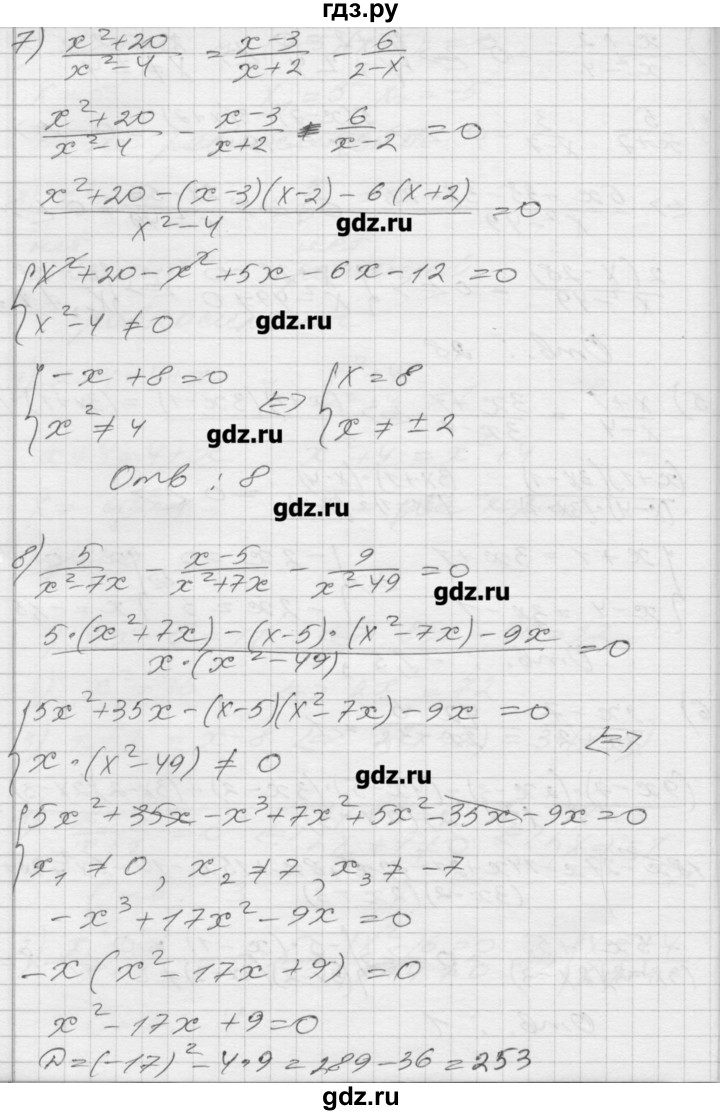 гдз.ру
7) (x²+20)/(x²-4) = (x-3)/(x+2) - 6/(2-x)
(x²+20)/(x²-4) - (x-3)/(x+2) - 6/(x-2) = 0
(x²+20-(x-3)(x-2)-6(x+2))/(x²-4) = 0
gdz.ru
{ x²+20-x²+5x-6x-12 = 0
x²-4 ≠ 0
gdz.ru
{ -x+8=0 ⇔ { x=8
x² ≠ 4 x ≠ ±2
gdz.ru
Отв: 8
gdz.ru
8) 5/(x²-7x) - (x-5)/(x²+7x) - 9/(x²-49) = 0
gdz.ru
(5·(x²+7x)-(x-5)·(x²-7x)-9x)/(x·(x²-49)) = 0
{ 5x²+35x-(x-5)(x²-7x)-9x = 0 ⇔
x·(x²-49) ≠ 0
gdz.ru
{ 5x²+35x-x³+7x²+5x²-35x-9x=0
x₁ ≠ 0, x₂ ≠ 7, x₃ ≠ -7
-x³+17x²-9x = 0
-x(x²-17x+9) = 0
x²-17x+9=0
D=(-17)²-4·9=289-36=253
gdz.ru